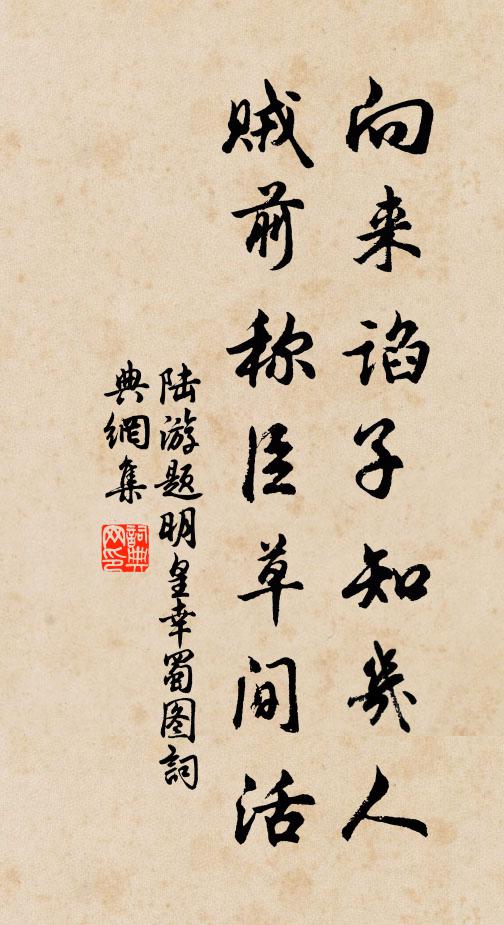 向来谄子知几人
贼前称臣草间活
陆游题明皇幸蜀图词
典網集
詞典網印